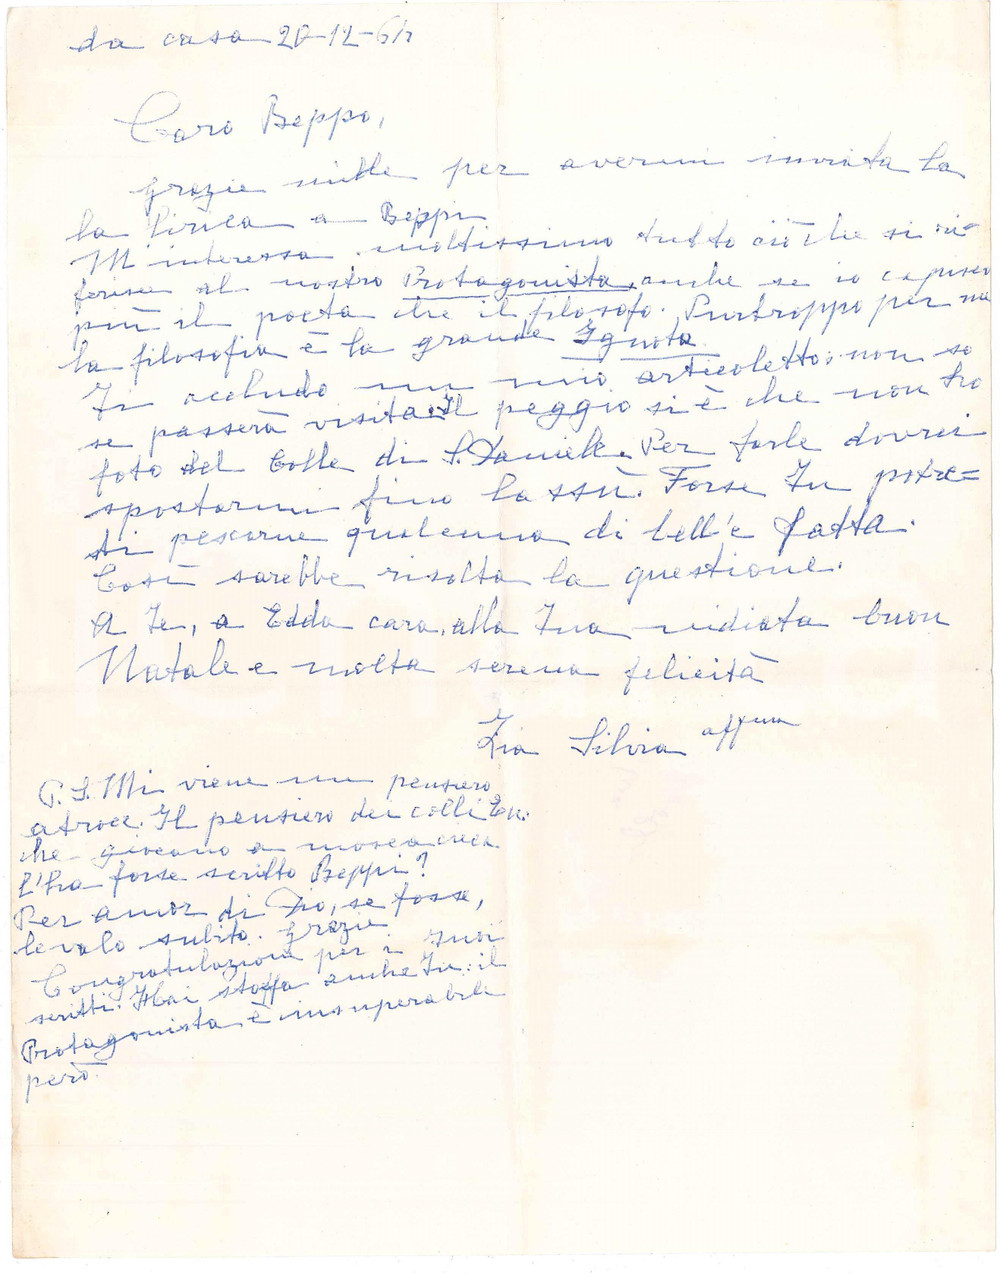 da casa 20-12-64
Caro Beppo,
grazie mille per avermi inviata la
la lirica a Beppi
M'interessa moltissimo tutto ciò che si ri-
ferisce al nostro Protagonista, anche se io capisco
più il poeta che il filosofo. Purtroppo per me
la filosofia è la grande Ignota.
Ti accludo un mio articoletto: non so
se passerà visita. Il peggio si è che non ho
foto del Colle di S. Daniele. Per farle dovrei
spostarmi fino lassù. Forse Tu potre=
sti pescarne qualcuna di bell'e fatta.
Così sarebbe risolta la questione.
A Te, a Edda cara, alla Tua nidiata buon
Natale e molta serena felicità
Zia Silvia affma
P.S. Mi viene un pensiero
atroce. Il pensiero dei colli Eu.
che giocano a mosca cieca.
L'ha forse scritto Beppi?
Per amor di Dio, se fosse,
levalo subito. Grazie
Congratulazioni per i suoi
scritti. Hai stoffa anche Tu: il
Protagonista è insuperabile
però.